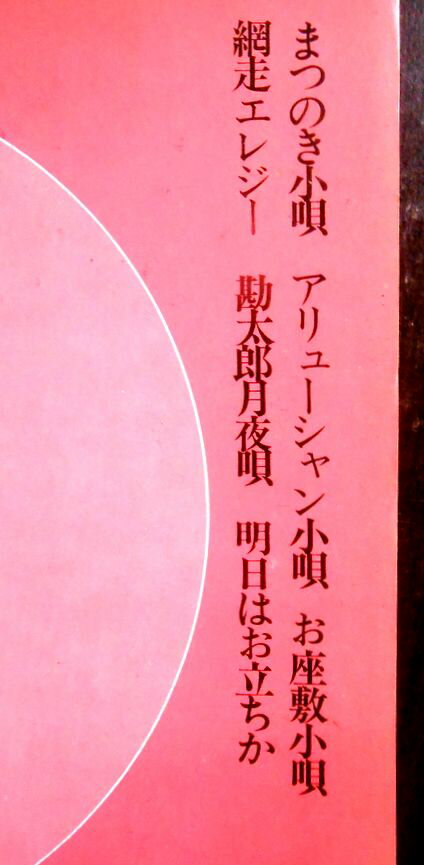 まつのき小唄　アリューシャン小唄　お座敷小唄
網走エレジー　勘太郎月夜唄　明日はお立ちか